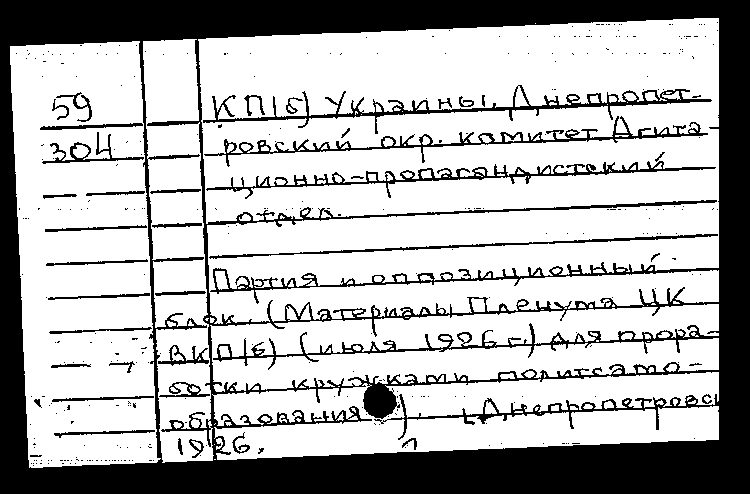 59
304
КП(б) Украины. Днепропет-
ровский окр. комитет Агита-
ционно-пропагандистский
отдел.
Партия и оппозиционный
блок. (Материалы Пленума ЦК
ВКП(б) (июля 1926 г.) для прора-
ботки кружками политсамо-
образования). [Днепропетровс
1926.